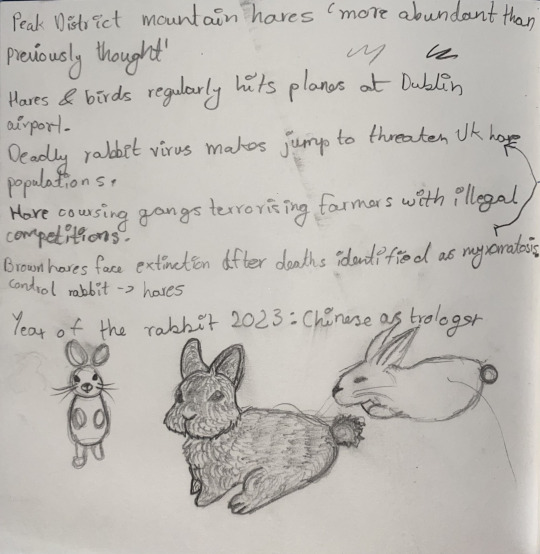 Peak District mountain hares 'more abundant than
previously thought'
Hares & birds regularly hits planes at Dublin
airport.
Deadly rabbit virus makes jump to threaten UK hare
populations.
Hare coursing gangs terrorising farmers with illegal
competitions.
Brown hares face extinction after deaths identified as myxomatosis
control rabbit -> hares
Year of the rabbit 2023: Chinese astrologer